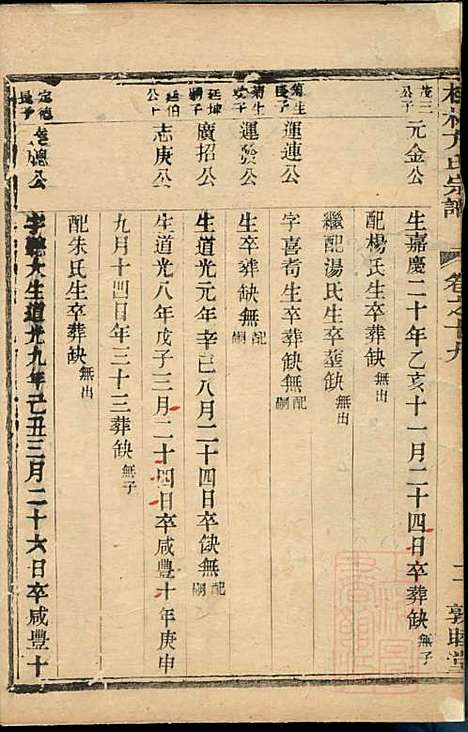 方氏宗譜
卷之十九
敦睦堂
元金公
生嘉慶二十年乙亥十一月二十四日卒葬缺無子
配楊氏生卒葬缺無出
繼配湯氏生卒葬缺無出
菊生長子
運連公
字喜喬生卒葬缺無配嗣
菊生次子
運發公
生卒葬缺無配嗣
廷坤嗣子
廣招公
生道光元年辛巳八月二十四日卒缺無配嗣
廷伯公子
志庚公
生道光八年戊子三月二十四日卒咸豐十年庚申
九月十四日年三十三葬缺無子
配朱氏生卒葬缺無出
定德長子
總公
生道光九年己丑三月二十六日卒咸豐十